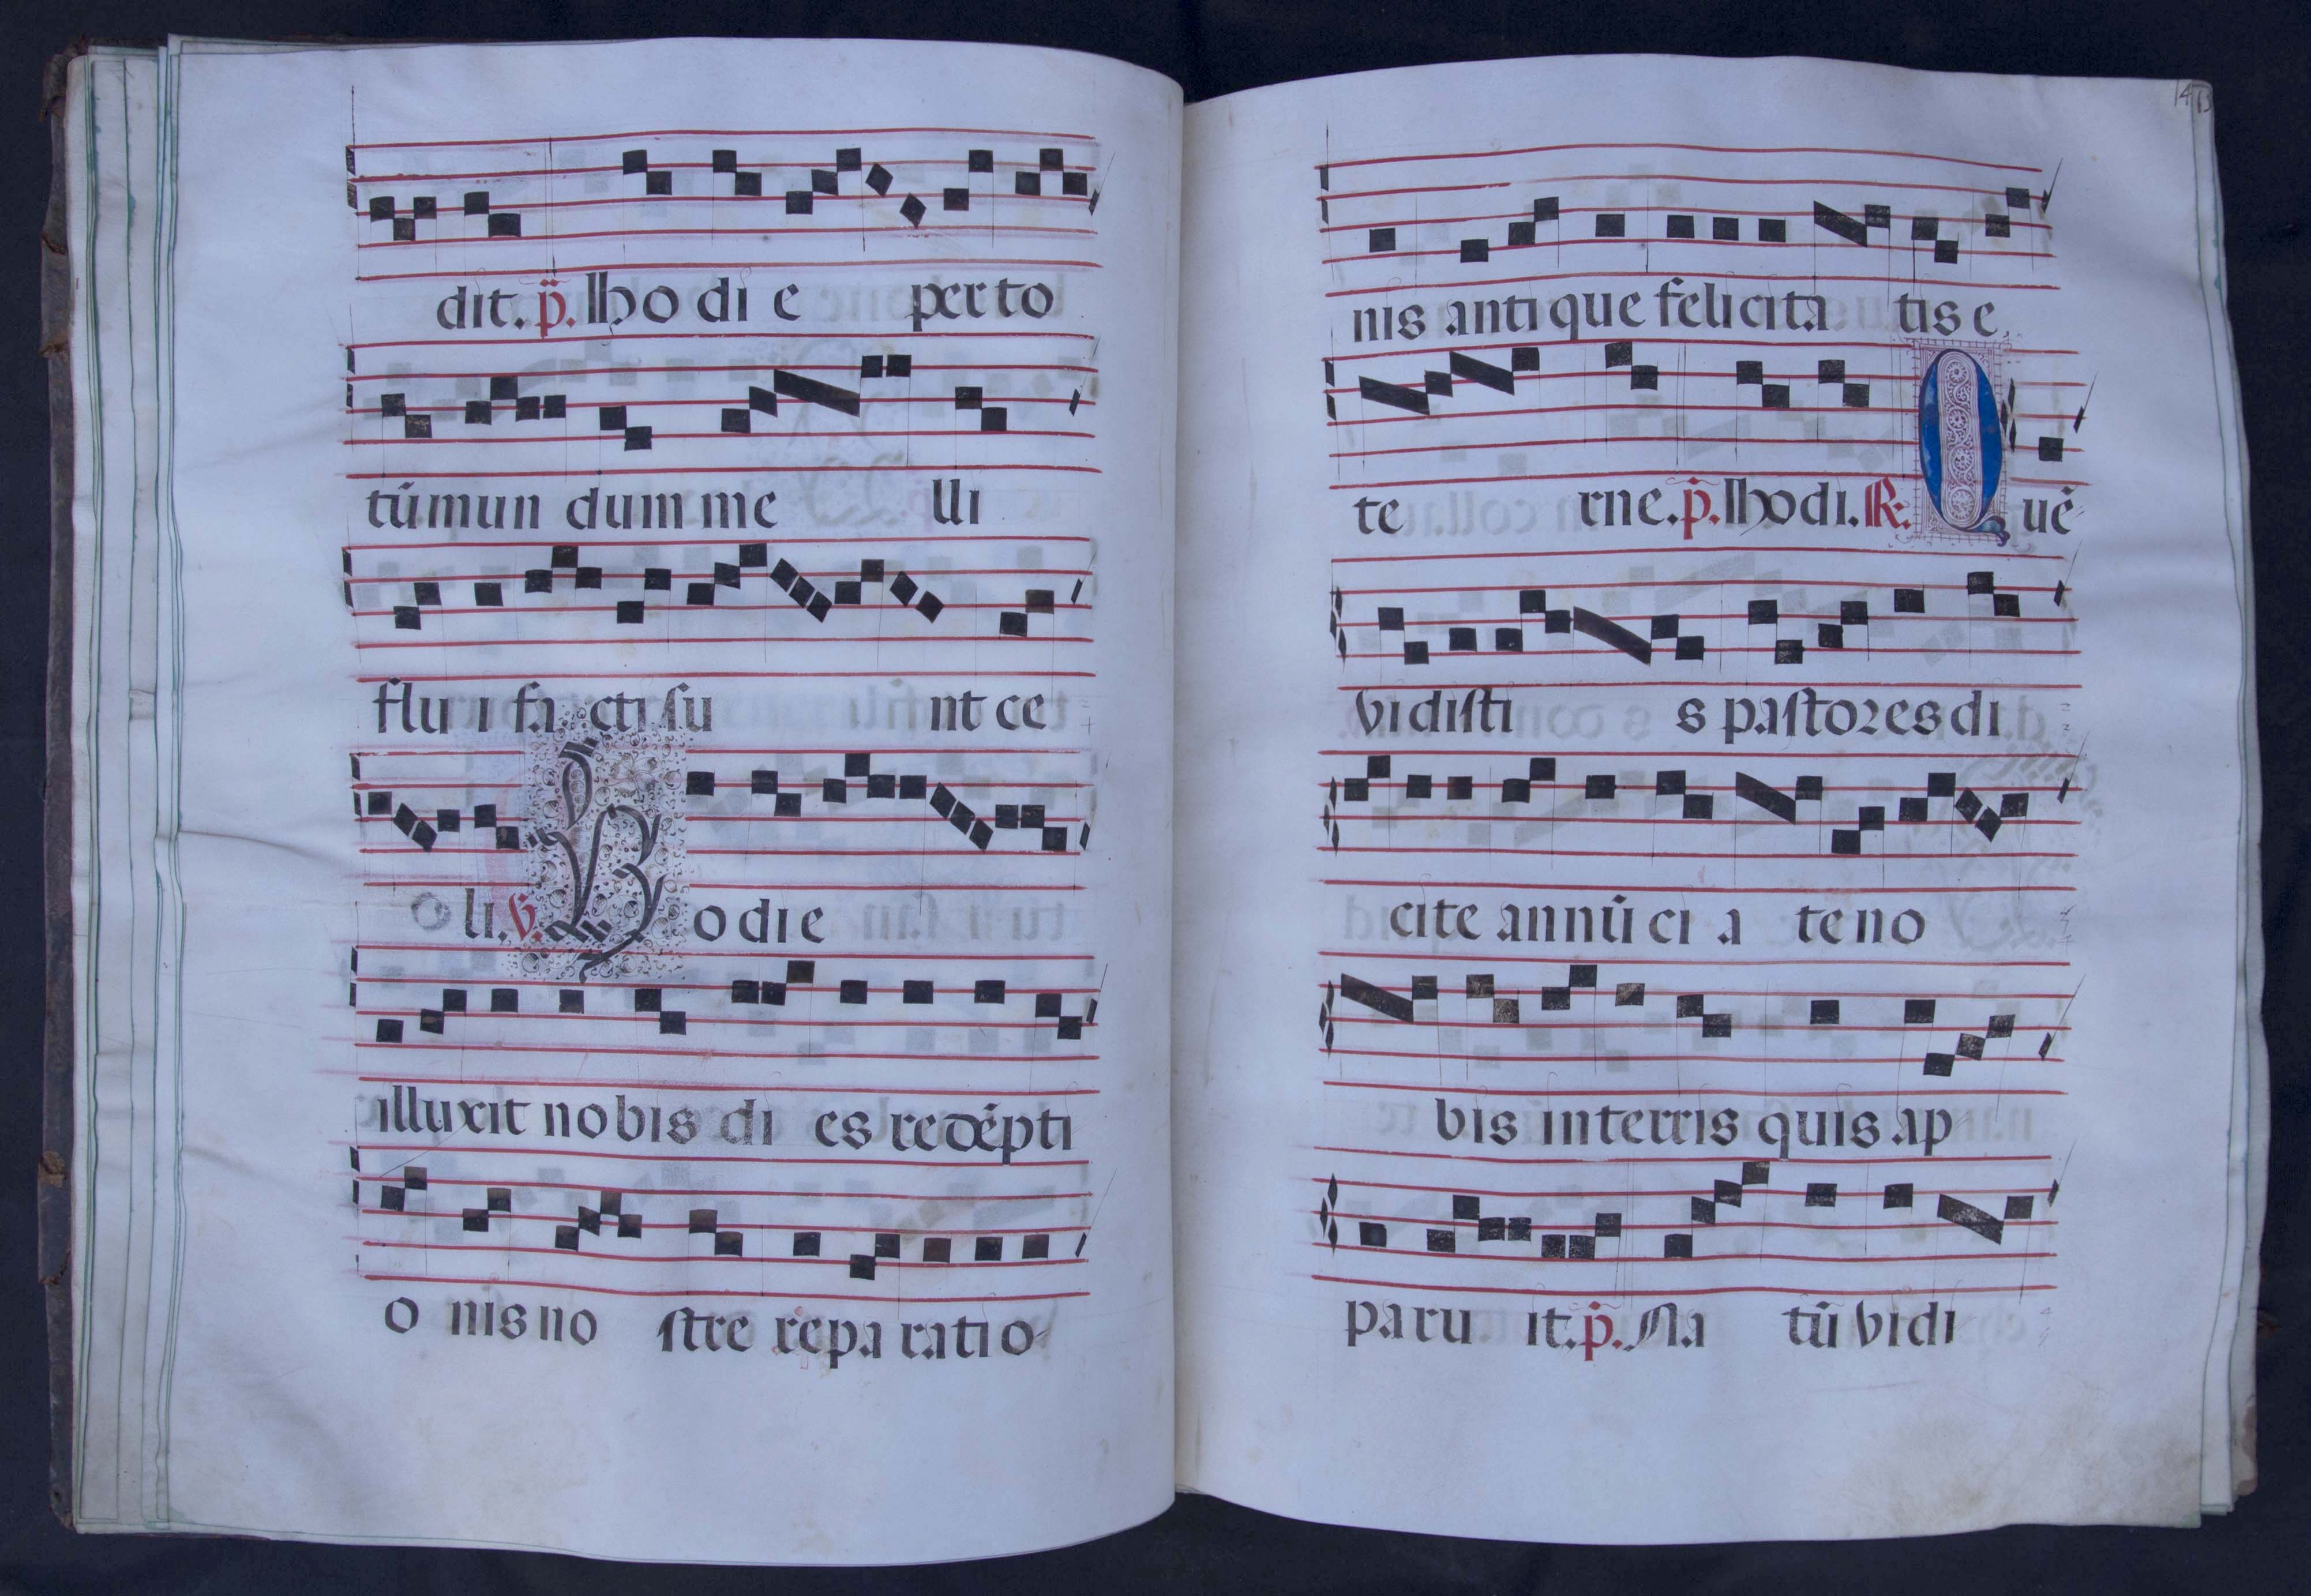 dit. p̄. Ho di e per to
tū mun dum me lli
flu i fa cti ſu nt ce
o li. V. Hodie
illuxit nobis di es redēpti
o nis no ſtre repa ratio-
nis antique felicita tis e
te rne. p̄. Hodi. R. Quē
vidiſti s paſtoꝛes di
cite annūci a te no
bis in terris quis ap
paru it. p̄. Na tū vidi